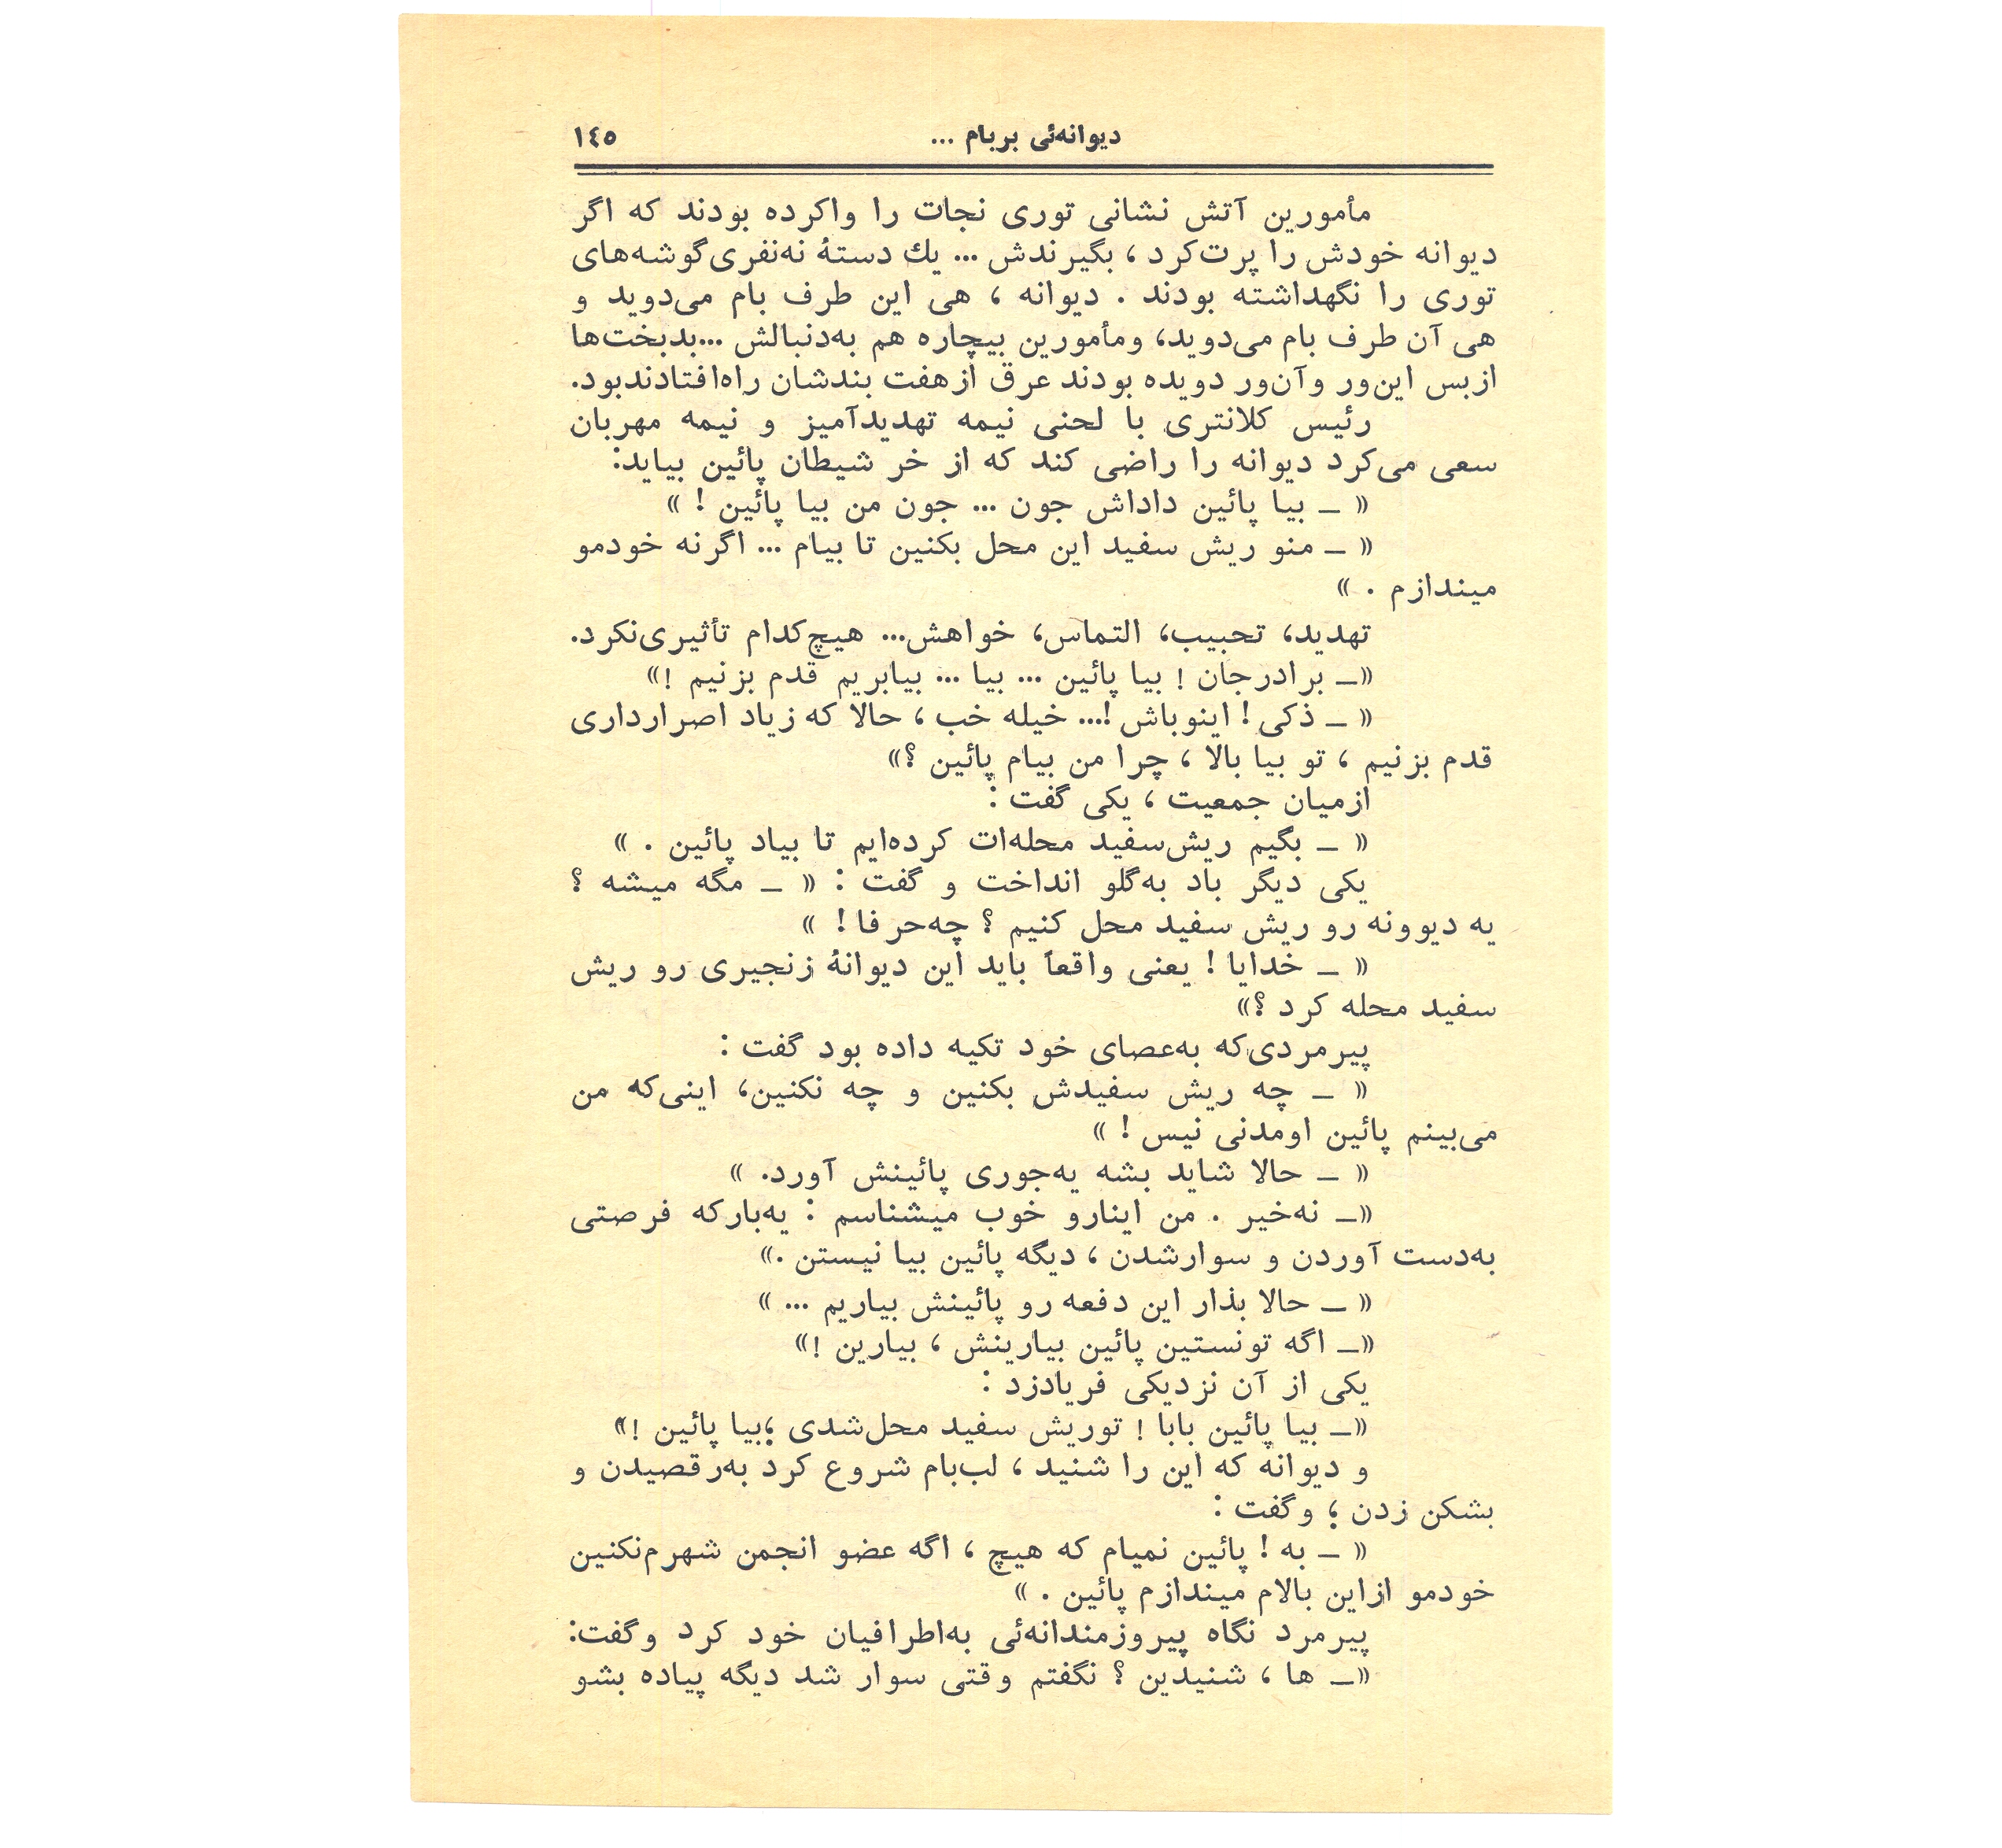 دیوانه‌ئی بربام ... ١٤٥
مأمورین آتش نشانی توری نجات را واکرده بودند که اگر
دیوانه خودش را پرت‌کرد ، بگیرندش ... یك دستهٔ نه‌نفری‌گوشه‌های
توری را نگهداشته بودند . دیوانه ، هی این طرف بام می‌دوید و
هی آن طرف بام می‌دوید، ومأمورین بیچاره هم به‌دنبالش ...بدبخت‌ها
ازبس این‌ور وآن‌ور دویده بودند عرق ازهفت بندشان راه‌افتادندبود.
رئیس کلانتری با لحنی نیمه تهدیدآمیز و نیمه مهربان
سعی می‌کرد دیوانه را راضی کند که از خر شیطان پائین بیاید:
« ــ بیا پائین داداش جون ... جون من بیا پائین ! »
« ــ منو ریش سفید این محل بکنین تا بیام ... اگرنه خودمو
میندازم . »
تهدید، تحبیب، التماس، خواهش... هیچ‌کدام تأثیری‌نکرد.
«ــ برادرجان ! بیا پائین ... بیا ... بیابریم قدم بزنیم !»
« ــ ذکی ! اینوباش !... خیله خب ، حالا که زیاد اصرارداری
قدم بزنیم ، تو بیا بالا ، چرا من بیام پائین ؟»
ازمیان جمعیت ، یکی گفت :
« ــ بگیم ریش‌سفید محله‌ات کرده‌ایم تا بیاد پائین . »
یکی دیگر باد به‌گلو انداخت و گفت : « ــ مگه میشه ؟
یه دیوونه رو ریش سفید محل کنیم ؟ چه‌حرفا ! »
« ــ خدایا ! یعنی واقعاً باید این دیوانهٔ زنجیری رو ریش
سفید محله کرد ؟»
پیرمردی‌که به‌عصای خود تکیه داده بود گفت :
« ــ چه ریش سفیدش بکنین و چه نکنین، اینی‌که من
می‌بینم پائین اومدنی نیس ! »
« ــ حالا شاید بشه یه‌جوری پائینش آورد. »
«ــ نه‌خیر . من اینارو خوب میشناسم : یه‌بارکه فرصتی
به‌دست آوردن و سوارشدن ، دیگه پائین بیا نیستن .»
« ــ حالا بذار این دفعه رو پائینش بیاریم ... »
«ــ اگه تونستین پائین بیارینش ، بیارین !»
یکی از آن نزدیکی فریادزد :
«ــ بیا پائین بابا ! توریش سفید محل‌شدی ؛بیا پائین !»
و دیوانه که این را شنید ، لب‌بام شروع کرد به‌رقصیدن و
بشکن زدن ؛ وگفت :
« ــ به ! پائین نمیام که هیچ ، اگه عضو انجمن شهرم‌نکنین
خودمو ازاین بالام میندازم پائین . »
پیرمرد نگاه پیروزمندانه‌ئی به‌اطرافیان خود کرد وگفت:
«ــ ها ، شنیدین ؟ نگفتم وقتی سوار شد دیگه پیاده بشو